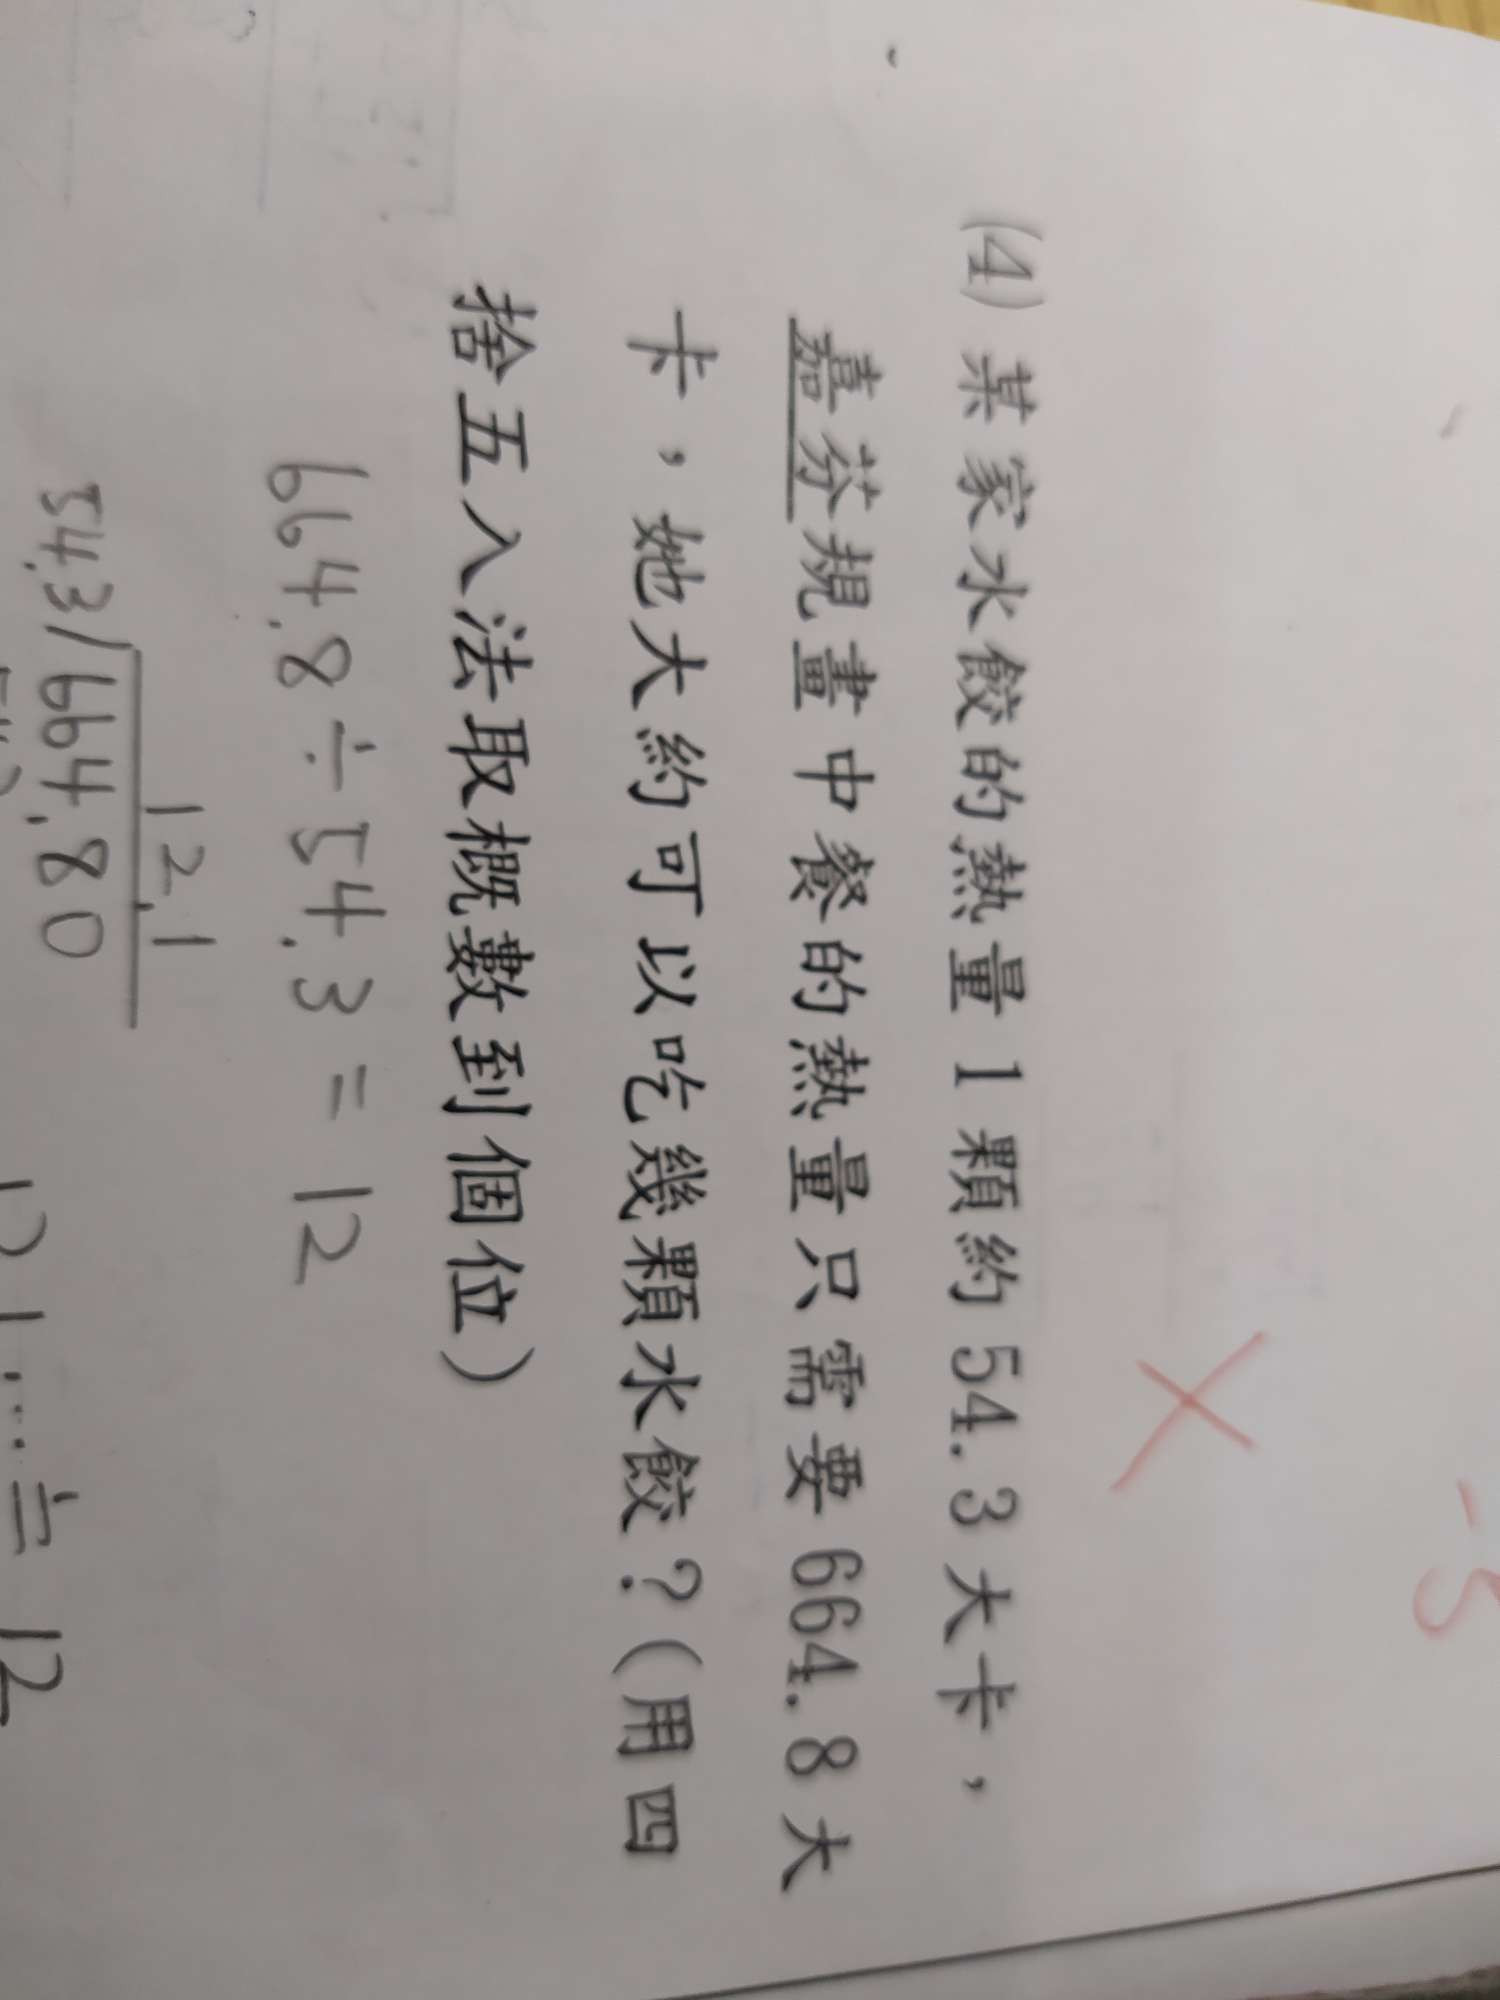 -5
(4) 某家水餃的熱量1顆約54.3大卡，
嘉芬規畫中餐的熱量只需要664.8大
卡，她大約可以吃幾顆水餃？(用四
捨五入法取概數到個位)
664.8÷54.3=12
12.1
54.3/664.80
12